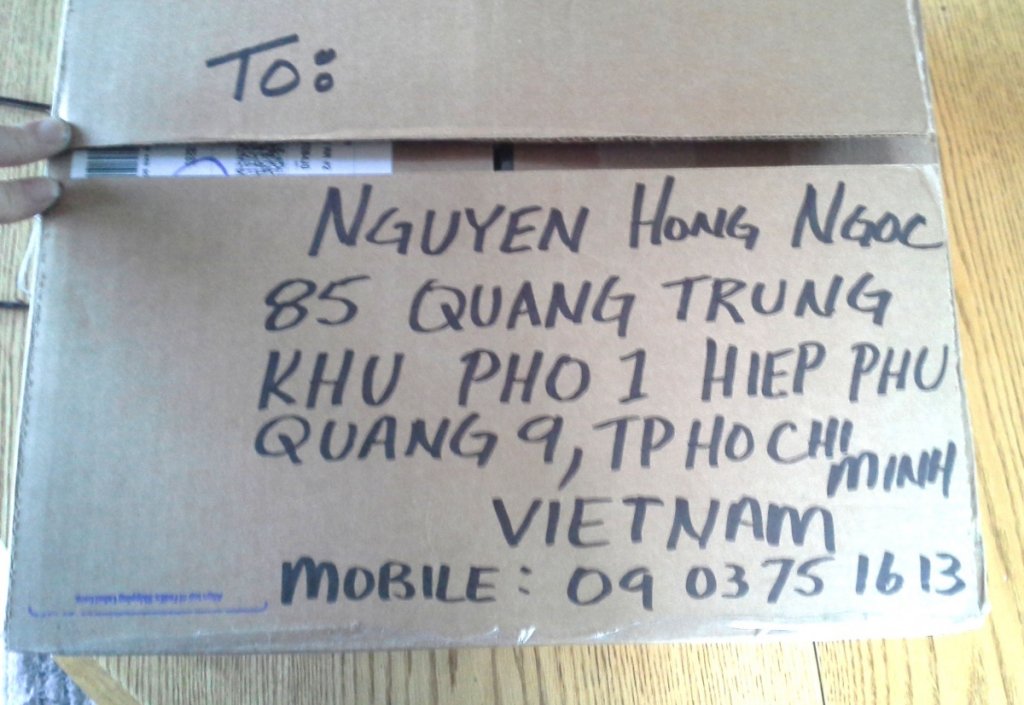 To:
NGUYEN HONG NGOC
85 QUANG TRUNG
KHU PHO 1 HIEP PHU
QUANG 9, TP HO CHI
MINH
VIETNAM
MOBILE: 09 03 75 16 13